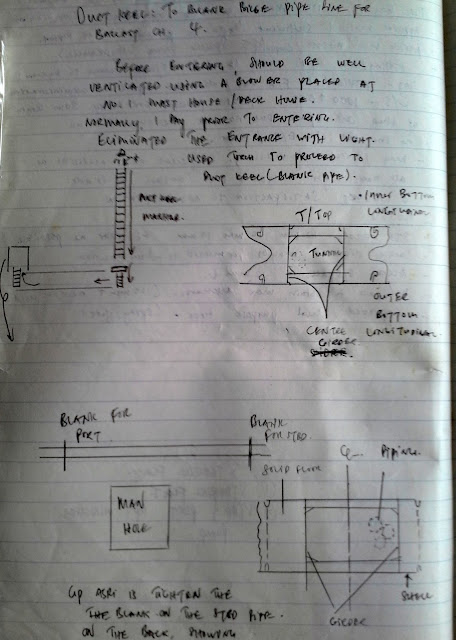 DUCT KEEL: TO BLANK BILGE PIPE LINE FOR
BALLAST CH 4.
BEFORE ENTERING, SHOULD BE WELL
VENTILATED USING A BLOWER PLACED AT
NO.1 MAST HOUSE / DECK HOUSE.
NORMALLY, 1 DAY PRIOR TO ENTERING.
ELIMINATED THE ENTRANCE WITH LIGHT.
USED TORCH TO PROCEED TO
DUCT KEEL (BLANK PIPE).
DUCT KEEL
MANHOLE.
T/TOP
INNER BOTTOM
LONGITUDINAL
TUNNEL
OUTER
BOTTOM
LONGITUDINAL.
CENTRE
GIRDER
BLANK FOR
PORT.
BLANK
FOR STBD.
MAN
HOLE
SOLID FLOOR
PIPING
SHELL
GIRDER
IS TIGHTEN THE
THE BLANK ON THE STBD PIPE.
ON THE BACK, SHOWING